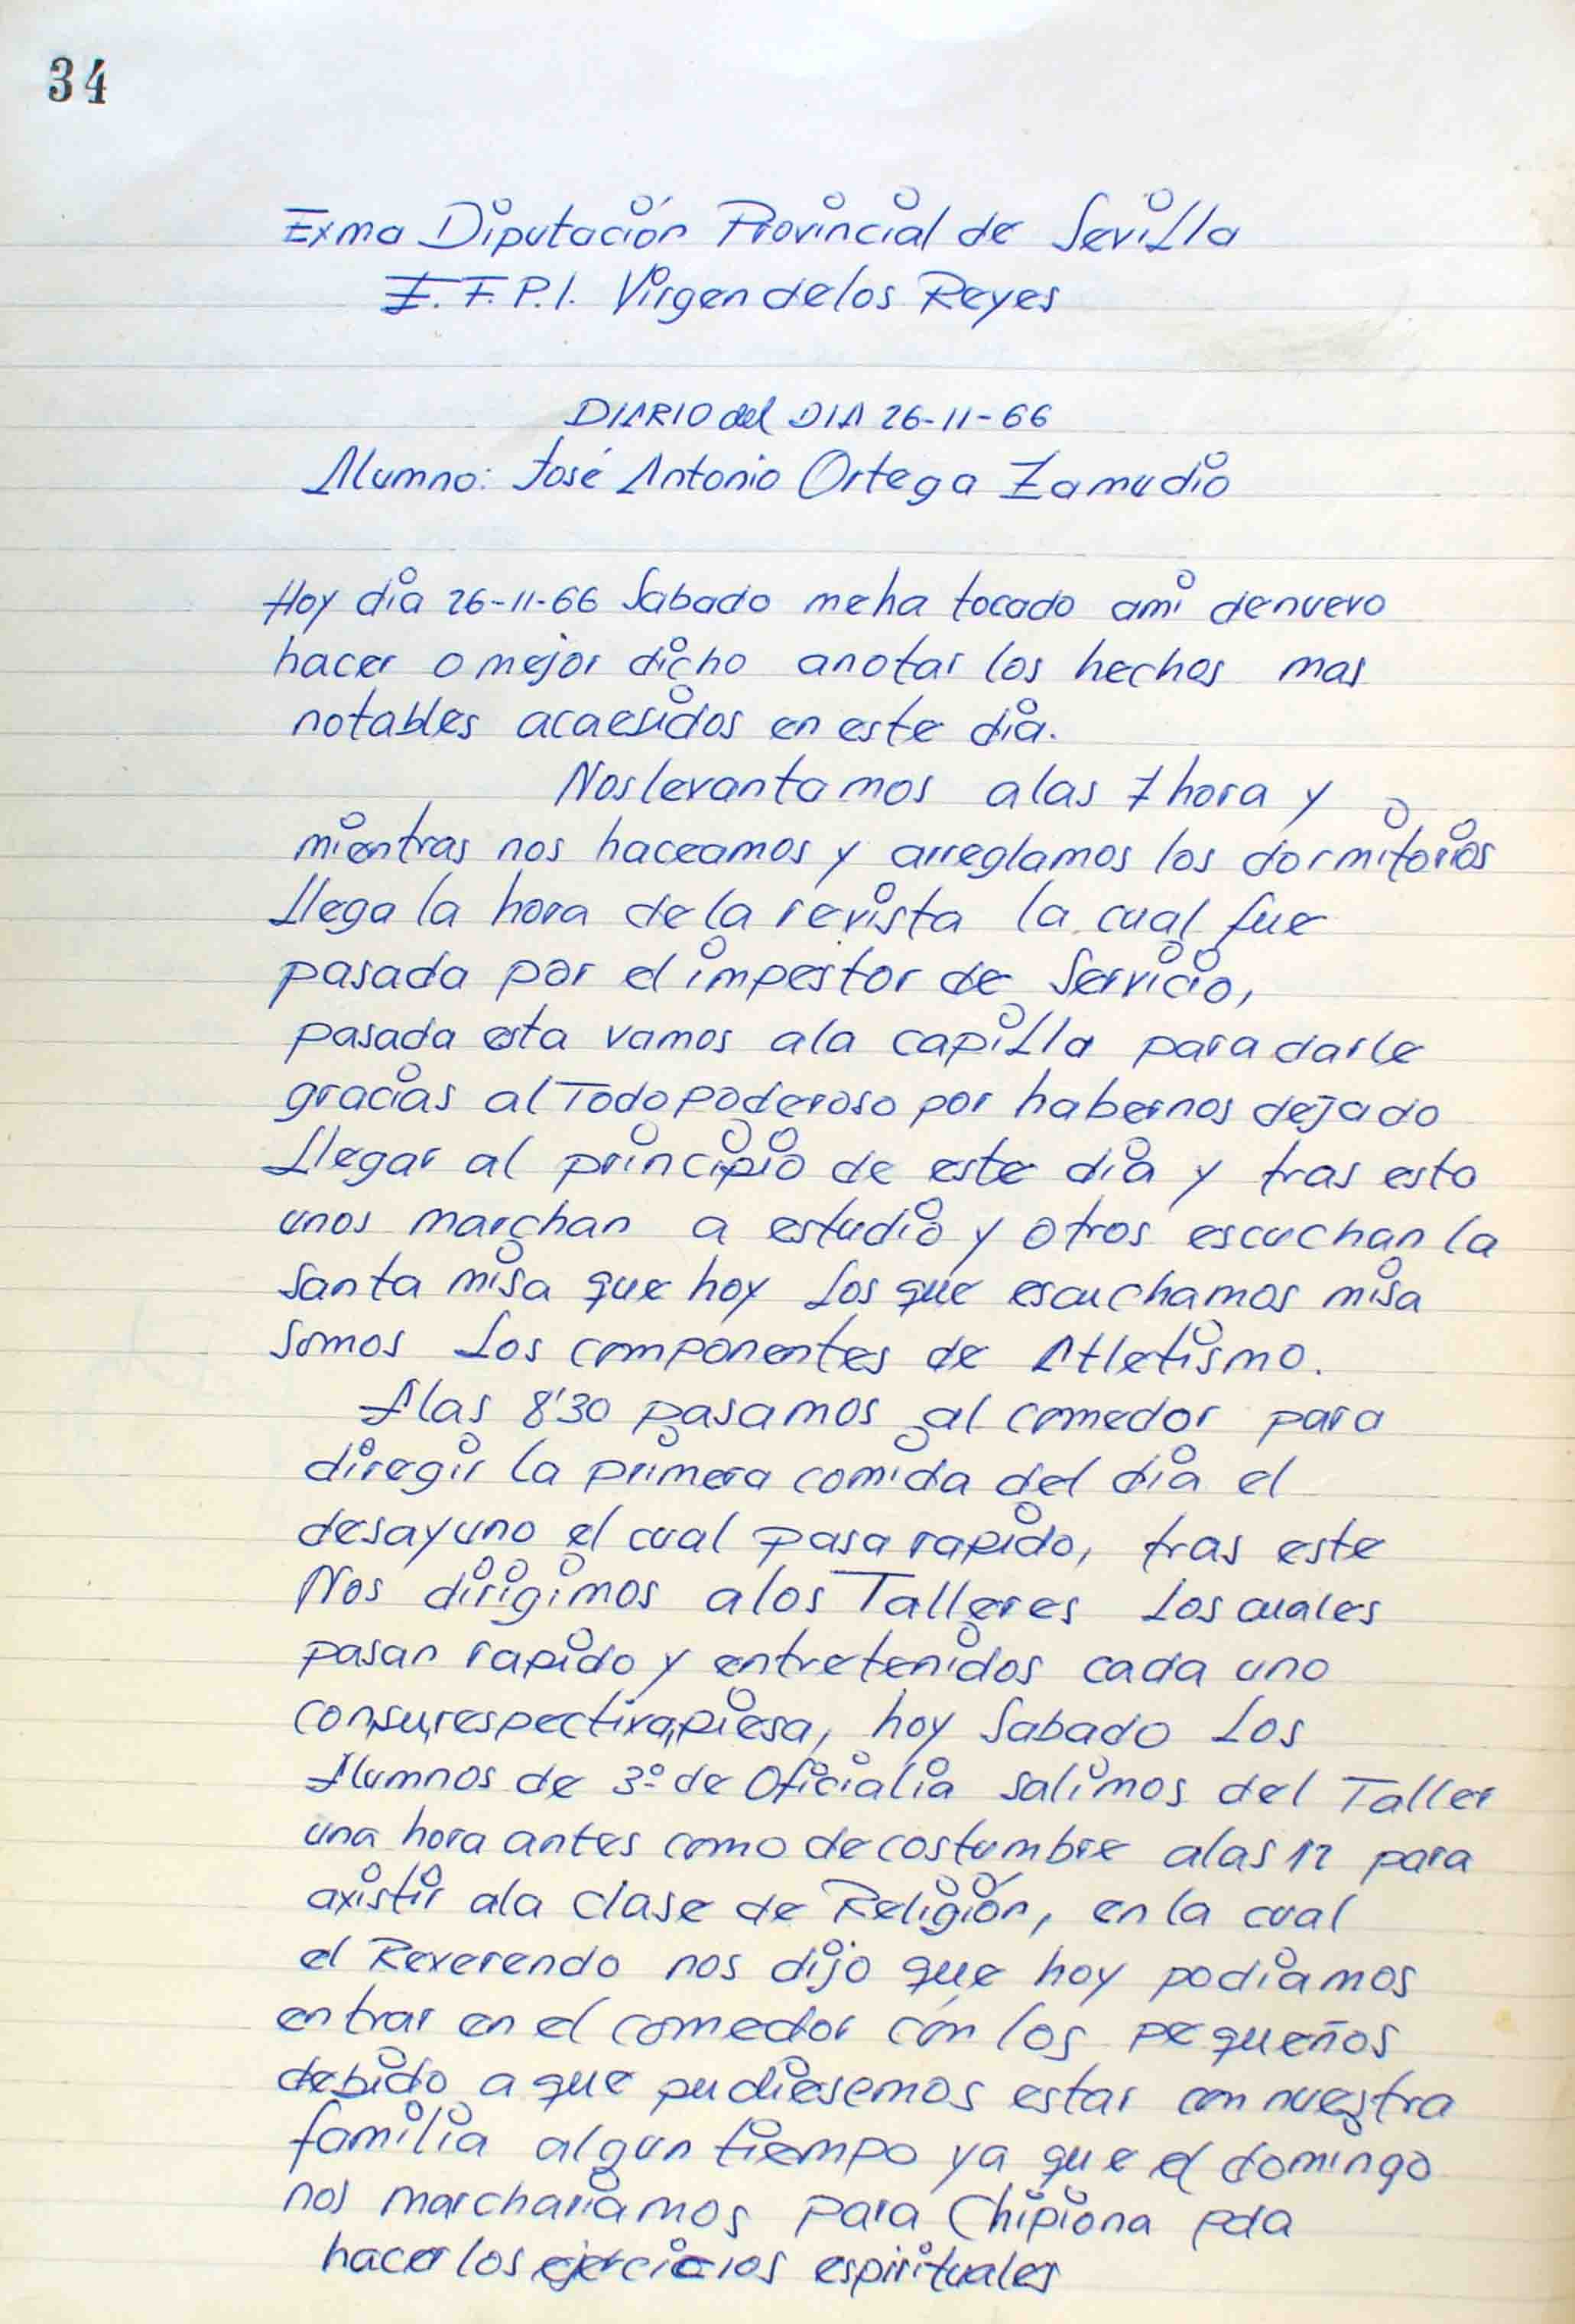 34
Exma Diputación Provincial de Sevilla
E.F.P.I. Virgen delos Reyes
DIARIO del DIA 26-11-66
Alumno: José Antonio Ortega Zamudio
Hoy dia 26-11-66 Sabado meha tocado ami denuevo
hacer o mejor dicho anotar los hechos mas
notables acaesidos en este dia.
Noslevantamos alas 7 hora y
mientras nos haceamos y arreglamos los dormitorios
llega la hora dela revista la cual fue
pasada por el impestor de Servicio,
pasada esta vamos ala capilla para darle
gracias al Todo poderoso por habernos dejado
llegar al principio de este dia y tras esto
unos marchan a estudio y otros escuchan la
Santa misa que hoy los que escuchamos misa
somos los componentes de Atletismo.
Alas 8'30 pasamos al comedor para
diregir la primera comida del dia el
desayuno el cual pasa rapido, tras este
Nos dirigimos alos Talleres los cuales
pasan rapido y entretenidos cada uno
con,su,respectiva,piesa, hoy Sabado los
Alumnos de 3º de Oficialia salimos del Taller
una hora antes como decostumbre alas 12 para
axistir ala clase de Religión, en la cual
el Reverendo nos dijo que hoy podiamos
entrar en el comedor cón los pequeños
debido a que pudiesemos estar con nuestra
familia algun tiempo ya que el domingo
nos marchariamos para Chipiona pda
hacer los ejercicios espirituales